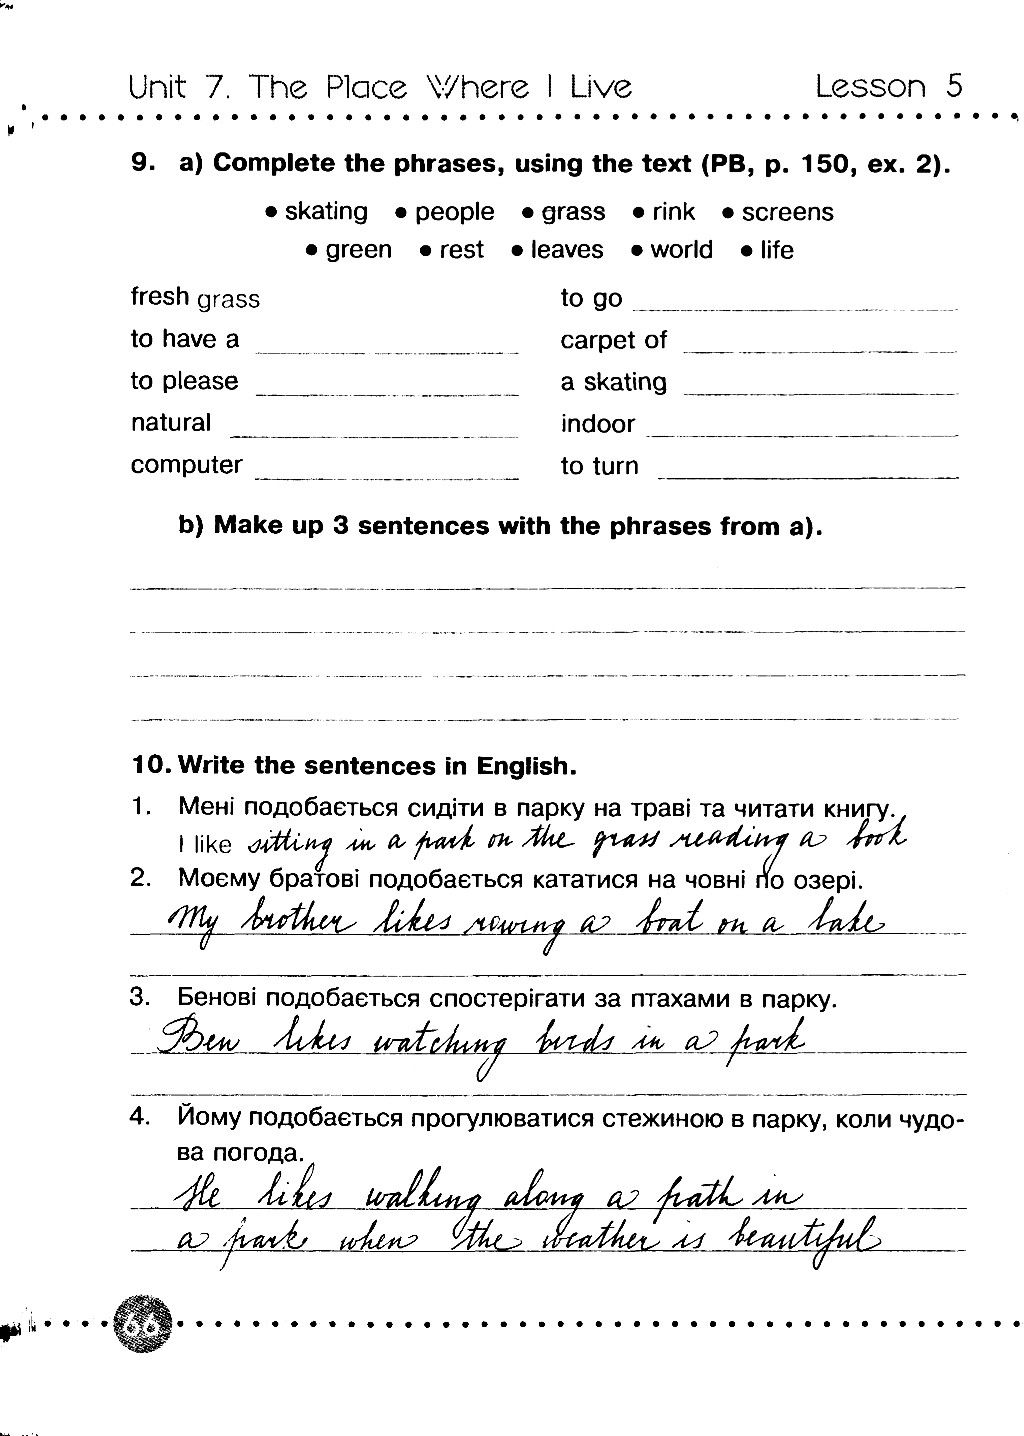 Unit 7. The Place Where I Live Lesson 5
9. a) Complete the phrases, using the text (PB, p. 150, ex. 2).
• skating • people • grass • rink • screens
• green • rest • leaves • world • life
fresh grass to go
to have a carpet of
to please a skating
natural indoor
computer to turn
b) Make up 3 sentences with the phrases from a).
10. Write the sentences in English.
1. Мені подобається сидіти в парку на траві та читати книгу.
I like sitting in a park on the grass reading a book
2. Моєму братові подобається кататися на човні по озері.
My brother likes rowing a boat on a lake
3. Бенові подобається спостерігати за птахами в парку.
Ben likes watching birds in a park
4. Йому подобається прогулюватися стежиною в парку, коли чудо-
ва погода.
He likes walking along a path in
a park when the weather is beautiful
66